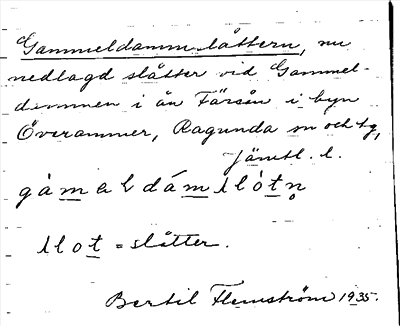 Gammeldammslåttern, nu
nedlagd slåtter vid Gammel-
dammen i ån Färsån i byn
Överammer, Ragunda sn och tg,
Jämtl. l.
gàmaldámslòtn̥
slot = slåtter.
Bertil Flemström 1935.